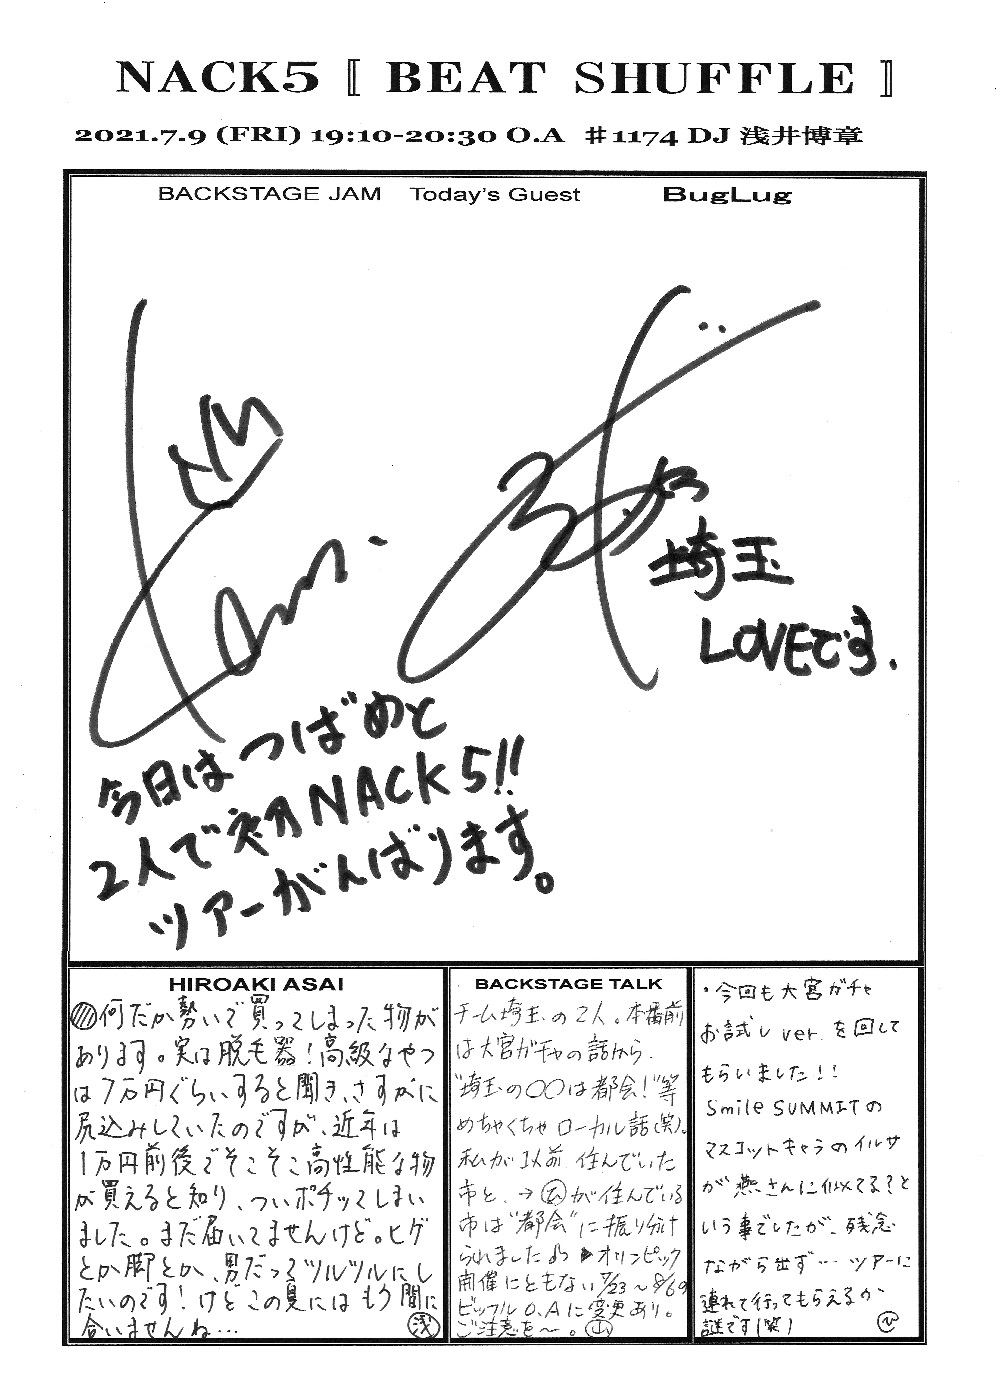 NACK5 〚 BEAT SHUFFLE 〛
2021.7.9 (FRI) 19:10-20:30 O.A ♯1174 DJ 浅井博章
BACKSTAGE JAM Today's Guest BugLug
埼玉
LOVEです.
今日はつばめと
2人で初NACK5!!
ツアーがんばります。
HIROAKI ASAI
何だか勢いで買ってしまった物が
あります。実は脱毛器!高級なやつ
は7万円ぐらいすると聞き、さすがに
尻込みしていたのですが、近年は
1万円前後でそこそこ高性能な物
が買えると知り、ついポチッてしまい
ました。まだ届いてませんけど。ヒゲ
とか脚とか、男だってツルツルにし
たいのです!けどこの夏にはもう間に
合いませんね… 浅
BACKSTAGE TALK
チーム埼玉の2人。本番前
は大宮ガチャの話から、
"埼玉の〇〇は都会!"等
めちゃくちゃローカル話(笑)。
私が以前住んでいた
市と、→ひが住んでいる
市は"都会"に振り分け
られました♪▶オリンピック
開催にともない7/23〜8/6の
ビッフルO.Aに変更あり。
ご注意を〜。山
・今回も大宮ガチャ
お試しver.を回して
もらいました!!
Smile SUMMITの
マスコットキャラのイルサ
が燕さんに似てる?と
いう事でしたが、残念
ながら出ず… ツアーに
連れて行ってもらえるか
謎です(笑) ひ